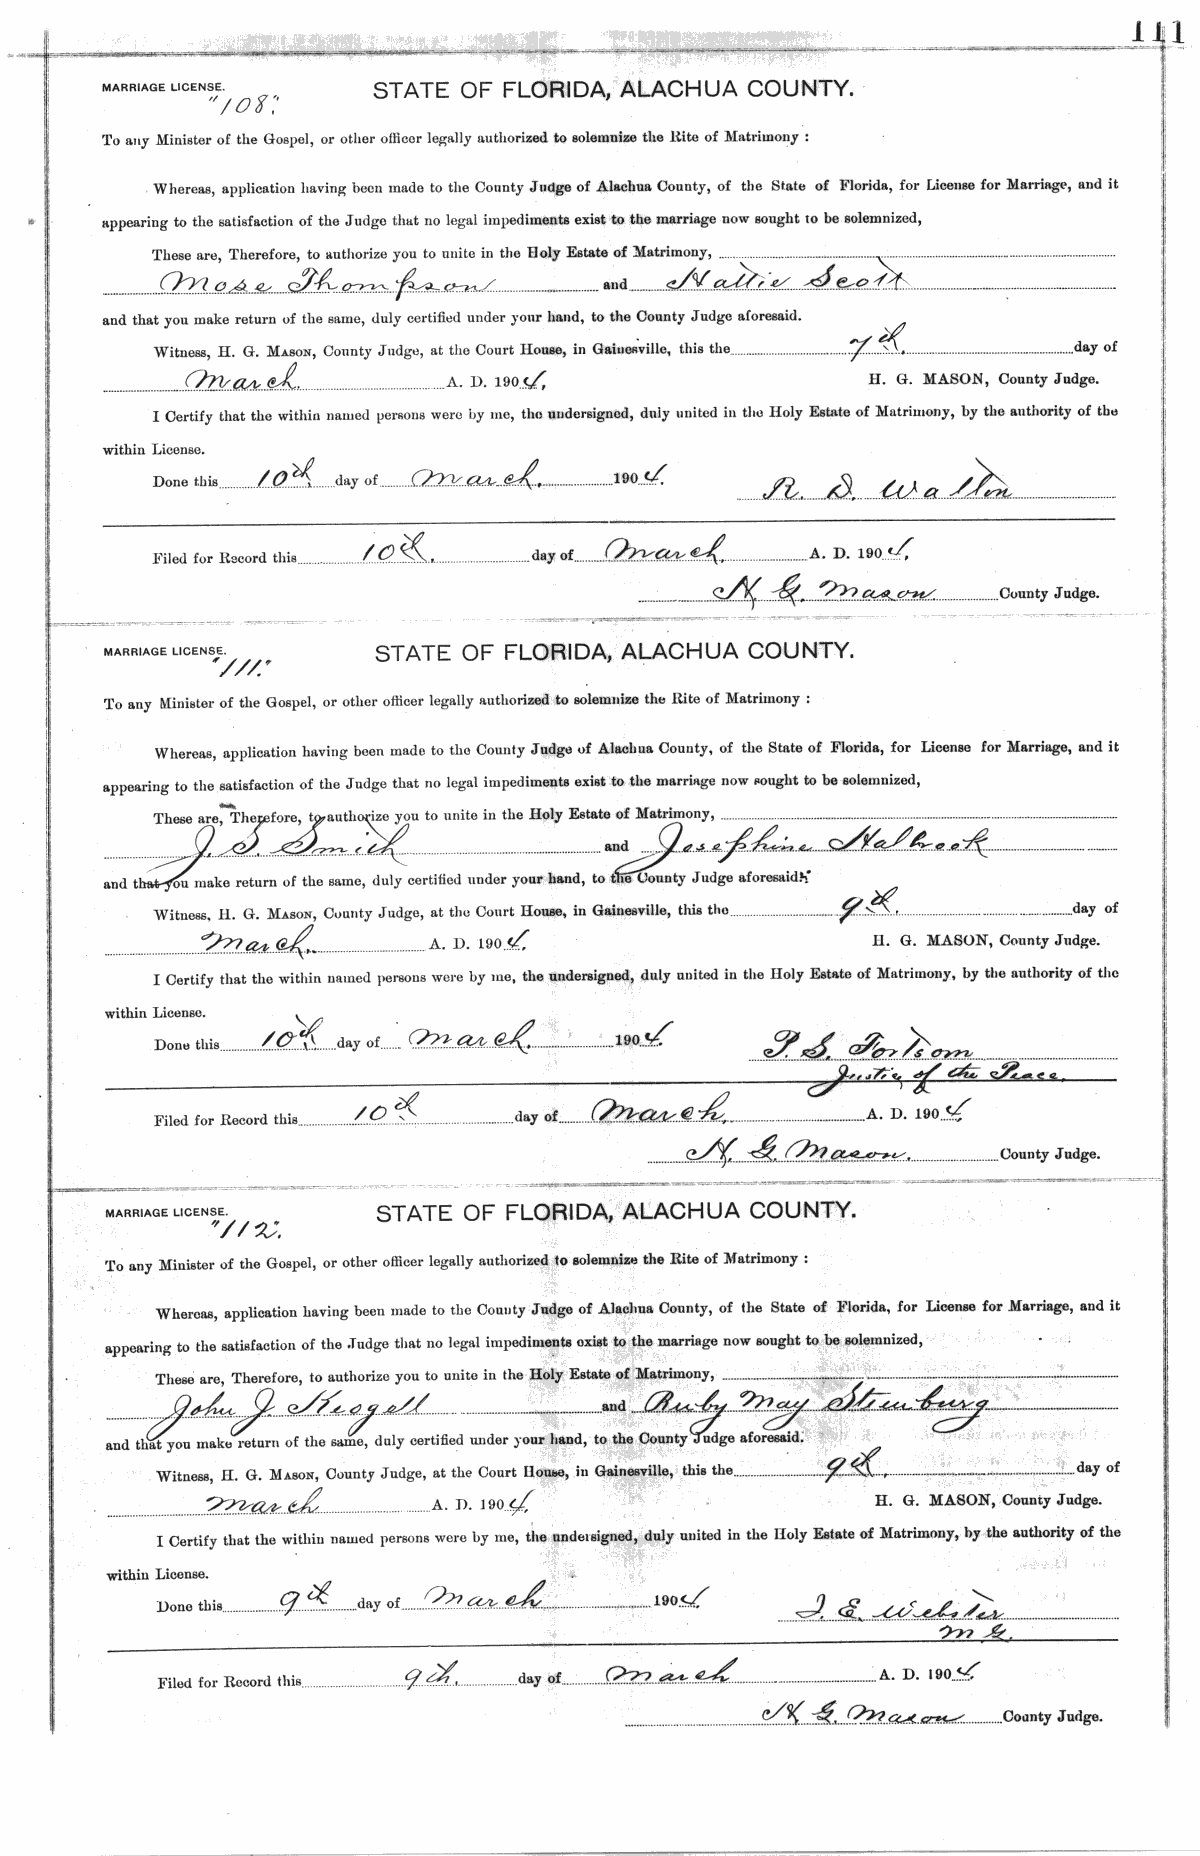 111
MARRIAGE LICENSE.
"108".
STATE OF FLORIDA, ALACHUA COUNTY.
To any Minister of the Gospel, or other officer legally authorized to solemnize the Rite of Matrimony :
Whereas, application having been made to the County Judge of Alachua County, of the State of Florida, for License for Marriage, and it
appearing to the satisfaction of the Judge that no legal impediments exist to the marriage now sought to be solemnized,
These are, Therefore, to authorize you to unite in the Holy Estate of Matrimony,
Mose Thompson and Hattie Scott
and that you make return of the same, duly certified under your hand, to the County Judge aforesaid.
Witness, H. G. MASON, County Judge, at the Court House, in Gainesville, this the 7th. day of
March. A. D. 1904. H. G. MASON, County Judge.
I Certify that the within named persons were by me, the undersigned, duly united in the Holy Estate of Matrimony, by the authority of the
within License.
Done this 10th day of March. 1904.
R. D. Walton
Filed for Record this 10th. day of March. A. D. 1904.
H. G. Mason County Judge.
MARRIAGE LICENSE.
"111".
STATE OF FLORIDA, ALACHUA COUNTY.
To any Minister of the Gospel, or other officer legally authorized to solemnize the Rite of Matrimony :
Whereas, application having been made to the County Judge of Alachua County, of the State of Florida, for License for Marriage, and it
appearing to the satisfaction of the Judge that no legal impediments exist to the marriage now sought to be solemnized,
These are, Therefore, to authorize you to unite in the Holy Estate of Matrimony,
J. S. Smith and Josephine Halbrook
and that you make return of the same, duly certified under your hand, to the County Judge aforesaid.
Witness, H. G. MASON, County Judge, at the Court House, in Gainesville, this the 9th. day of
March. A. D. 1904. H. G. MASON, County Judge.
I Certify that the within named persons were by me, the undersigned, duly united in the Holy Estate of Matrimony, by the authority of the
within License.
Done this 10th day of March. 1904.
P. S. Fortsom
Justice of the Peace.
Filed for Record this 10th day of March. A. D. 1904.
H. G. Mason. County Judge.
MARRIAGE LICENSE.
"112".
STATE OF FLORIDA, ALACHUA COUNTY.
To any Minister of the Gospel, or other officer legally authorized to solemnize the Rite of Matrimony :
Whereas, application having been made to the County Judge of Alachua County, of the State of Florida, for License for Marriage, and it
appearing to the satisfaction of the Judge that no legal impediments exist to the marriage now sought to be solemnized,
These are, Therefore, to authorize you to unite in the Holy Estate of Matrimony,
John J. and Ruby May
and that you make return of the same, duly certified under your hand, to the County Judge aforesaid.
Witness, H. G. MASON, County Judge, at the Court House, in Gainesville, this the 9th. day of
March A. D. 1904. H. G. MASON, County Judge.
I Certify that the within named persons were by me, the undersigned, duly united in the Holy Estate of Matrimony, by the authority of the
within License.
Done this 9th day of March 1904.
E. Webster
M G.
Filed for Record this 9th. day of March A. D. 1904.
H G. Mason County Judge.